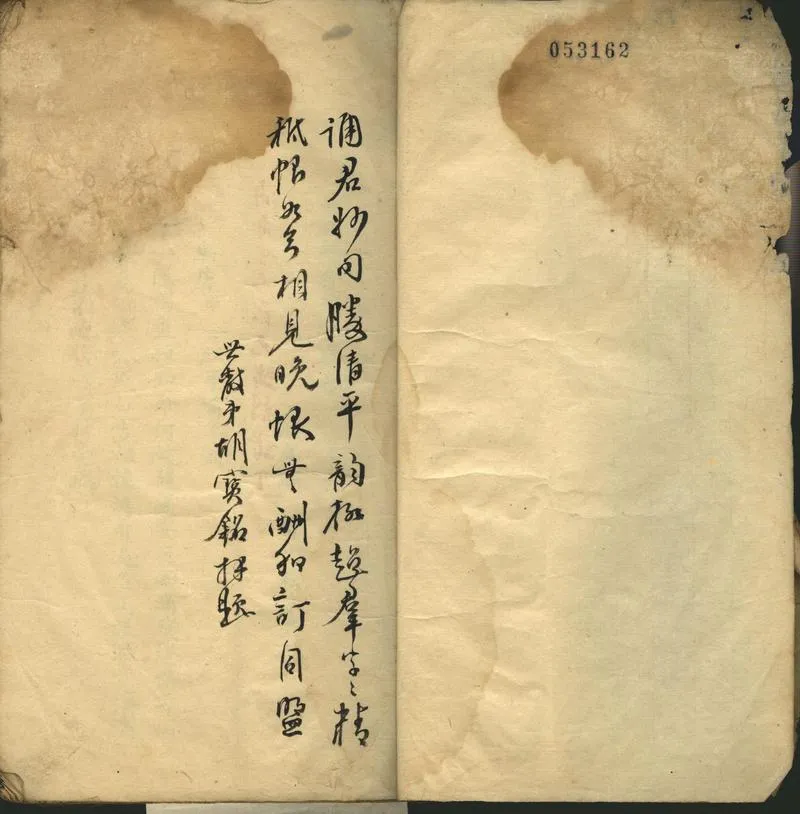 053162
誦君妙句勝清平韻極超羣字〻精
秪恨相見晚恨無酬和訂同盟
世教弟胡寶銘拜題